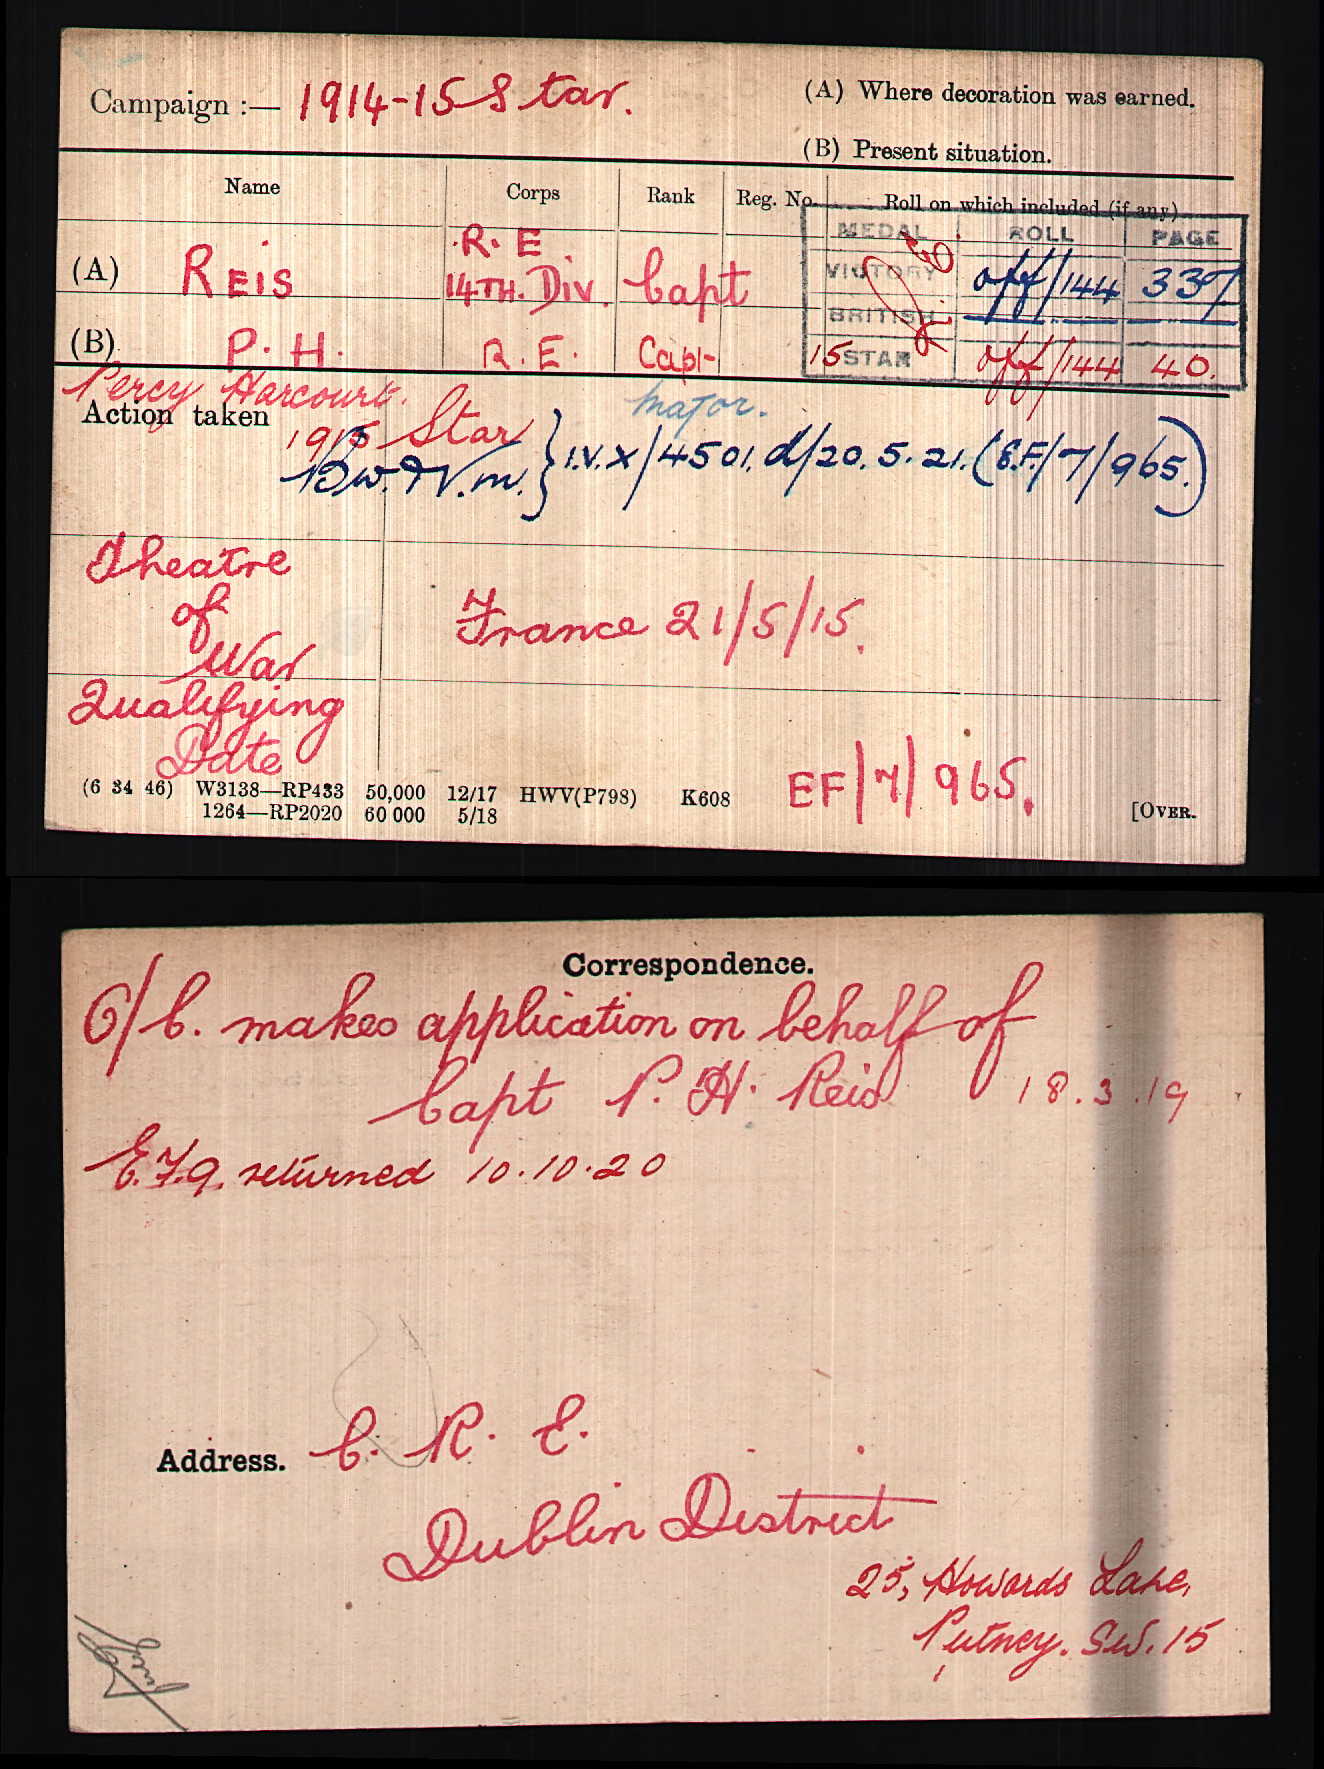 Campaign :— 1914-15 Star.
(A) Where decoration was earned.
(B) Present situation.
Name Corps Rank Reg. No. Roll on which included (if any)
MEDAL ROLL PAGE
(A) REIS R. E. 14TH. Div. Capt
VICTORY off/144 337
BRITISH
(B) P. H. R. E. Capt
15 STAR off/144 40.
Percy Harcourt.
Major.
Action taken
1915 Star
B.W. & V.M. } I.V.X/4501. d/20.5.21. (E.F/7/965.)
Theatre
of
War
France 21/5/15.
Qualifying
Date
EF/7/965.
(6 34 46) W3138—RP433 50,000 12/17 HWV(P798) K608
1264—RP2020 60 000 5/18
[OVER.
Correspondence.
O/C. makes application on behalf of
Capt P. H. Reis 18.3.19
E.F.9. returned 10.10.20
Address. C. R. E.
Dublin District
25, Howards Lane,
Putney. S.W. 15